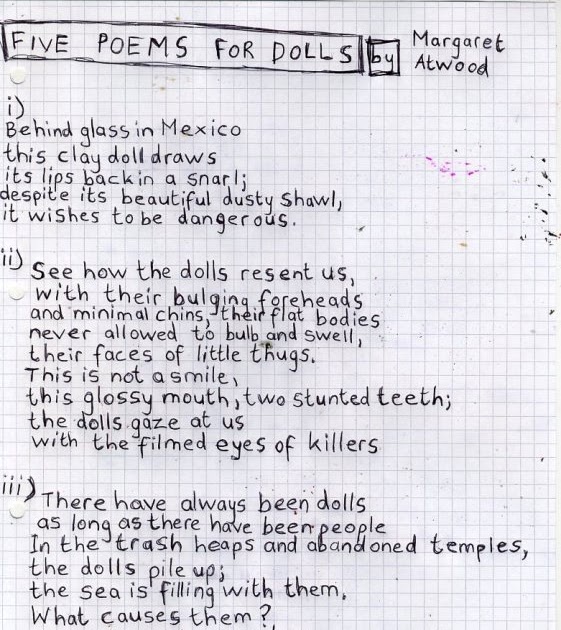 FIVE POEMS FOR DOLLS by Margaret Atwood
i)
Behind glass in Mexico
this clay doll draws
its lips back in a snarl;
despite its beautiful dusty shawl,
it wishes to be dangerous.
ii)
See how the dolls resent us,
with their bulging foreheads
and minimal chins, their flat bodies
never allowed to bulb and swell,
their faces of little thugs.
This is not a smile,
this glossy mouth, two stunted teeth;
the dolls gaze at us
with the filmed eyes of killers
iii)
There have always been dolls
as long as there have been people
In the trash heaps and abandoned temples,
the dolls pile up;
the sea is filling with them,
What causes them?